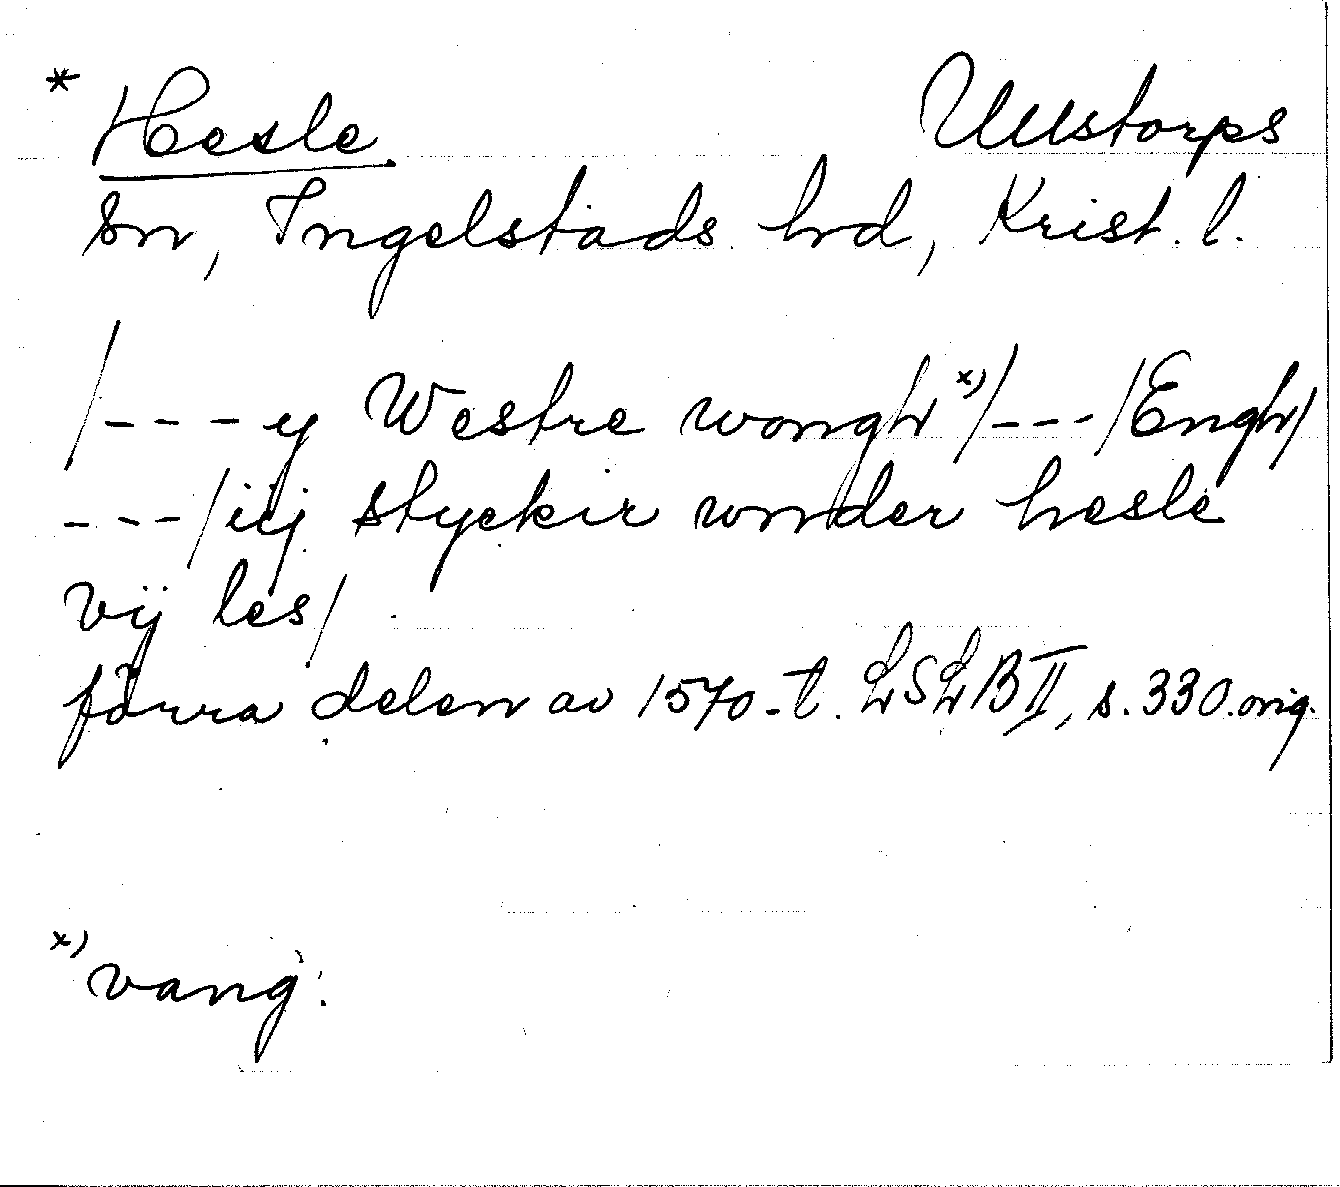 * Hesle. Ullstorps
sn, Ingelstads hd, Krist. l.
/---y Westre wongh x)/---/Engh/
---/iij styckir wnder hesle
vij les/
förra delen av 1570-t. LSLB II, s. 330. orig.
x) vang.